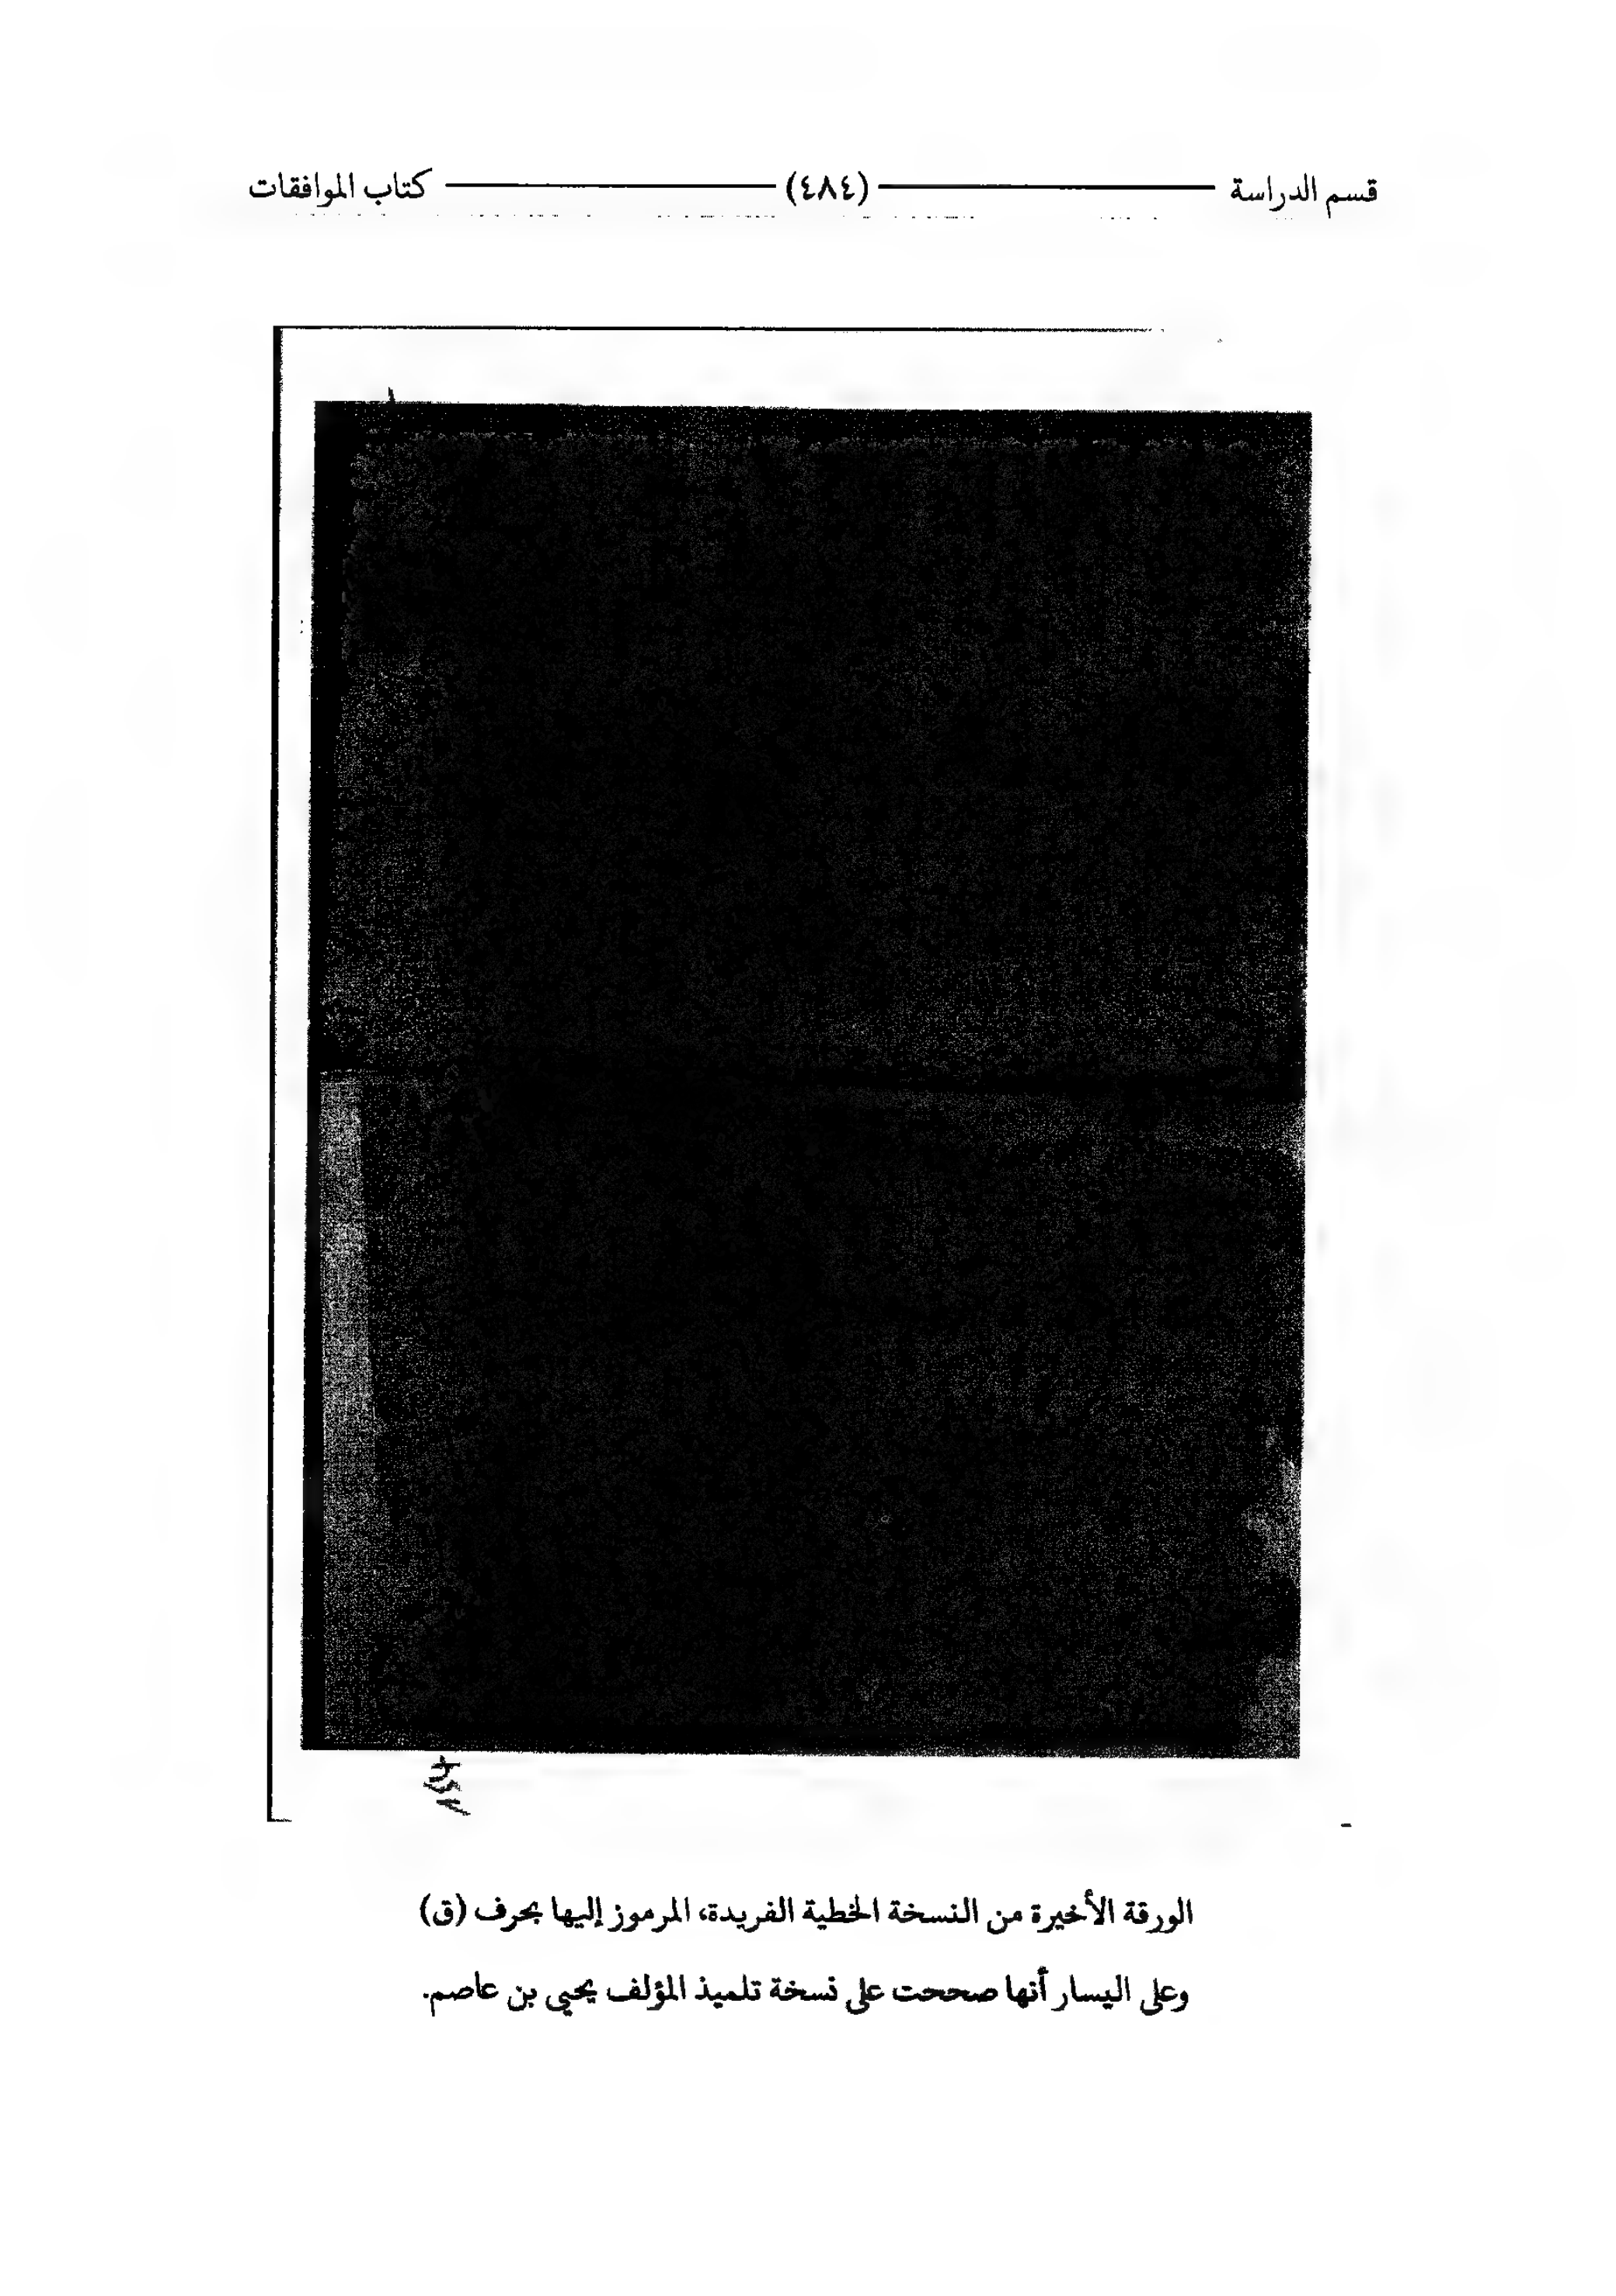 قسم الدراسة (٤٨٤) كتاب الموافقات
الورقة الأخيرة من النسخة الخطية الفريدة، المرموز إليها بحرف (ق)
وعلى اليسار أنها صححت على نسخة تلميذ المؤلف يحيى بن عاصم.